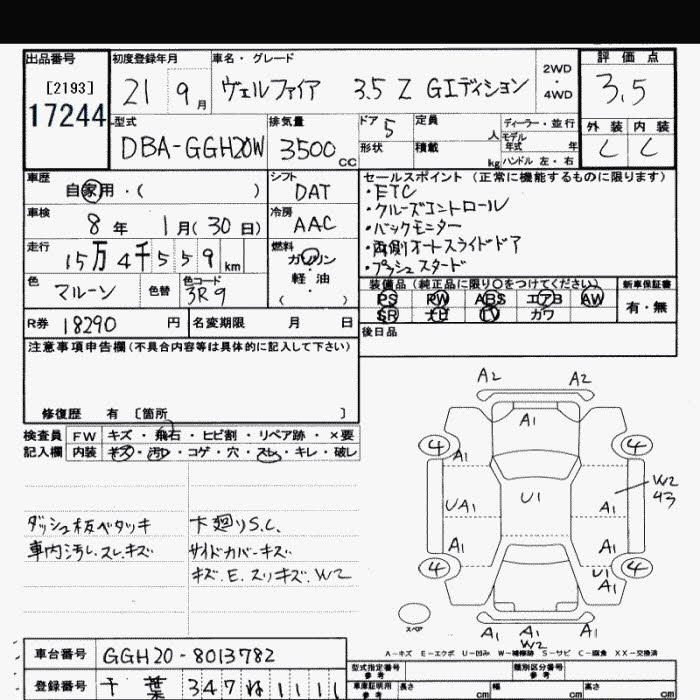 出品番号 初度登録年月 車名・グレード 評価点
[2193] 21 9月 ヴェルファイア 3.5 Z Gエディション 2WD・4WD 3.5
17244 型式 排気量 ドア 5 定員 人 ディーラー・並行 外装 内装
DBA-GGH20W 3500cc 形状 積載 kg モデル年式 年 ハンドル 左・右 C C
車歴 自家用・( ) シフト DAT セールスポイント (正常に機能するものに限ります)
車検 8年 1月(30日) 冷房 AAC ・ETC
・クルーズコントロール
・バックモニター
走行 15万4千559km 燃料 ガソリン・軽油・( ) ・両側オートスライドドア
・プッシュスタード
色 マルーン 色替 色コード 3R9 装備品(純正品に限り○をつけてください) 新車保証書
PS PW ABS エアB AW 有・無
R券 18290円 名変期限 月 日 SR ナビ TV カワ
注意事項申告欄(不具合内容等は具体的に記入して下さい) 後日品
修復歴 有 〔箇所 〕
検査員 FW キズ・飛石・ヒビ割・リペア跡・×要
記入欄 内装 キズ・汚れ・コゲ・穴・スレ・キレ・破レ
ダッシュ板ベタツキ 下廻りS.C.
車内汚レ.スレ.キズ サイドカバーキズ
キズ.E.スリキズ.W2
A2 A2
A1
4 4
A1
UA1 U1 A1 W2 43
A1 A1
4 U1 4
A1
スペア
A1 A1 A1
W2
A-キズ E-エクボ U-凹み W-補修跡 S-サビ C-腐食 XX-交換済
車台番号 GGH20-8013782
型式指定番号 参考 類別区分番号 参考
登録番号 千葉 347 ね 1111 車庫証明用 参考 長さ cm 幅 cm 高さ cm